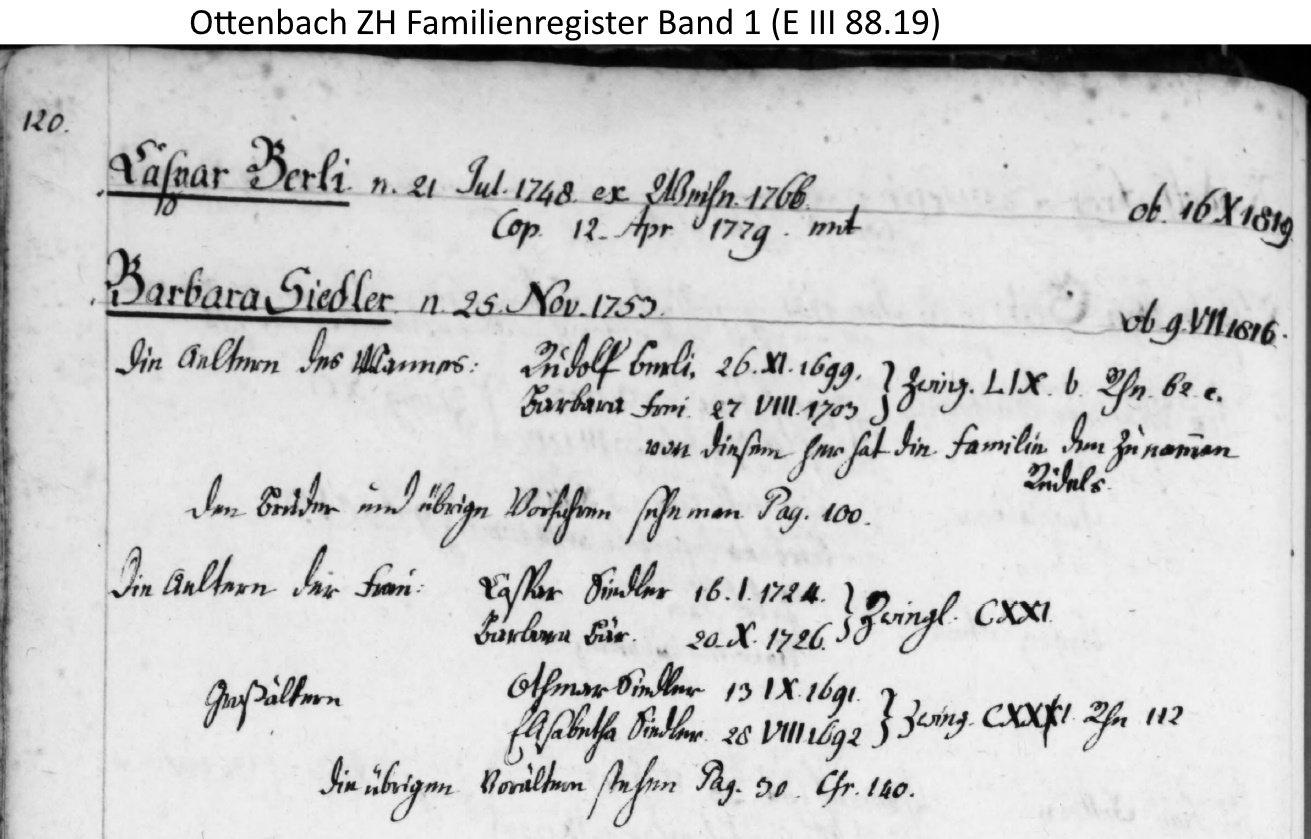 Ottenbach ZH Familienregister Band 1 (E III 88.19)
120.
Caspar Berli n. 21 Jul. 1748. ex Weihn. 1766. ob. 16 X 1819
Cop. 12. Apr 1779. mit
Barbara Siedler n. 25. Nov. 1753. ob 9. VII 1816.
Die Aeltern des Mannes: Rudolf Berli, 26. XI. 1699. } Zwing. LIX. b. Rhn. 62. c.
Barbara Frei. 27 VIII. 1703
von diesem her hat die Familie den Zunamen
Rudels.
Den Bruder und übrige Vorfahren sehe man Pag. 100.
Die Aeltern der Frau: Caspar Siedler 16. I. 1724. } Zwingl. CXXI.
Barbara Bär. 20. X. 1726.
Großältern Othmar Siedler 13 IX. 1691. } Zwing. CXXXI. Rhn 112
Elisabetha Siedler. 28 VIII 1692
die übrigen Vorältern stehen Pag. 30. Cfr. 140.